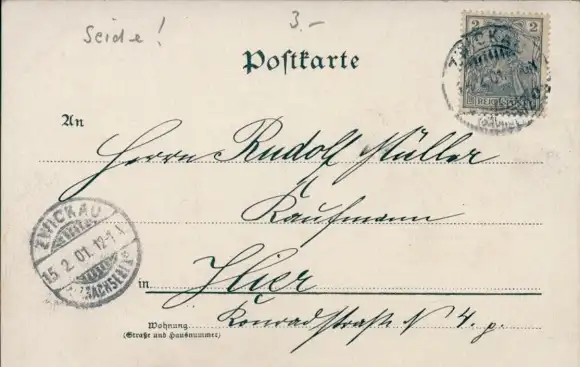 Seide! 3.-
Postkarte
2 2
REICHSPOST
ZWICKAU
An
Herrn Rudolf Müller
Kaufmann
ZWICKAU
15.2.01.12-1
(SACHSEN)
in Hier
Wohnung
(Straße und Hausnummer)
Konradstraße N 4. p.